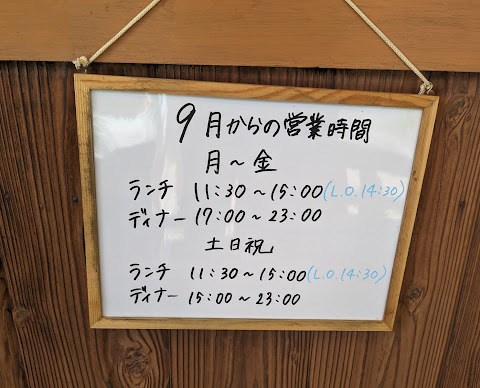 9月からの営業時間
月～金
ランチ 11:30～15:00(L.O.14:30)
ディナー 17:00～23:00
土日祝
ランチ 11:30～15:00(L.O.14:30)
ディナー 15:00～23:00